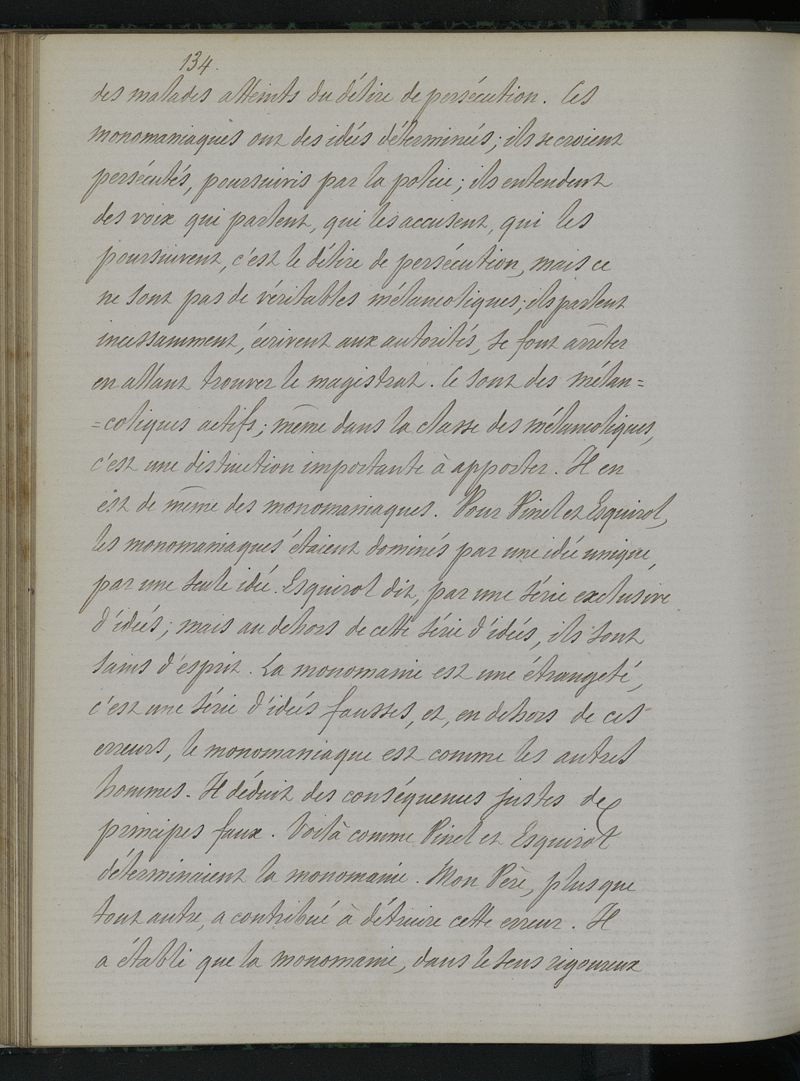 134.
des malades atteints du délire de persécution. Ces
monomaniaques ont des idées déterminées; ils se croient
persécutés, poursuivis par la police; ils entendent
des voix qui parlent, qui les accusent, qui les
poursuivent, c'est le délire de persécution, mais ce
ne sont pas de véritables mélancoliques; ils parlent
incessamment, écrivent aux autorités, se font arrêter
en allant trouver le magistrat. Ce sont des mélan=
=coliques actifs; même dans la classe des mélancoliques,
c'est une distinction importante à apporter. Il en
est de même des monomaniaques. Pour Pinel et Esquirol,
les monomaniaques étaient dominés par une idée unique,
par une seule idée. Esquirol dit, par une série exclusive
d'idées; mais au dehors de cette série d'idées, ils sont
sains d'esprit. La monomanie est une étrangeté,
c'est une série d'idées fausses, et, en dehors de ces
erreurs, le monomaniaque est comme les autres
hommes. Il déduit des conséquences justes de
principes faux. Voilà comme Pinel et Esquirol
déterminaient la monomanie. Mon Père, plus que
tout autre, a contribué à détruire cette erreur. Il
a établi que la monomanie, dans le sens rigoureux